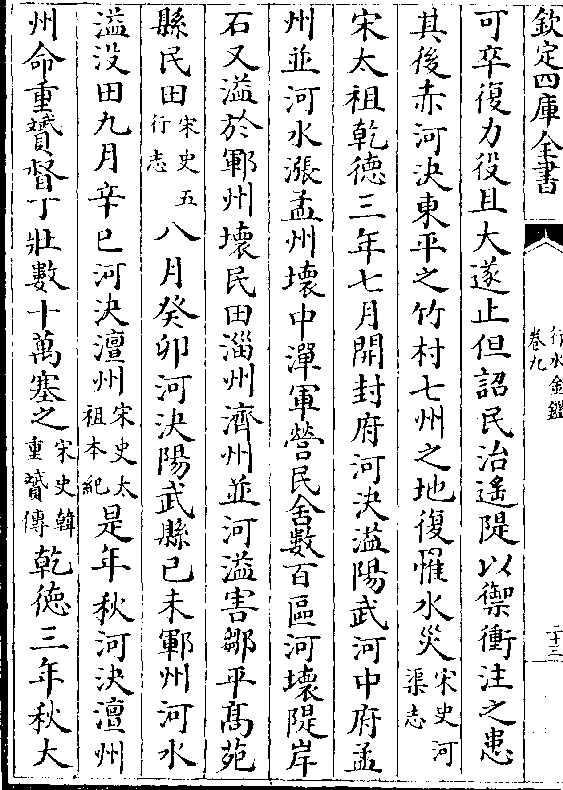 欽定四庫全書
行水金鑑
卷九
二十三
可卒復力役且大遂止但詔民治遙隄以禦衝注之患
其後赤河決東平之竹村七州之地復罹水災宋史河渠志
宋太祖乾德三年七月開封府河決溢陽武河中府孟
州並河水漲孟州壞中潬軍營民舍數百區河壞隄岸
石又溢於鄆州壞民田淄州濟州並河溢害鄒平髙苑
縣民田宋史五行志八月癸卯河決陽武縣已未鄆州河水
溢没田九月辛巳河決澶州宋史太祖本紀是年秋河決澶州
州命重贇督丁壯數十萬塞之宋史韓重贇傳乾德三年秋大